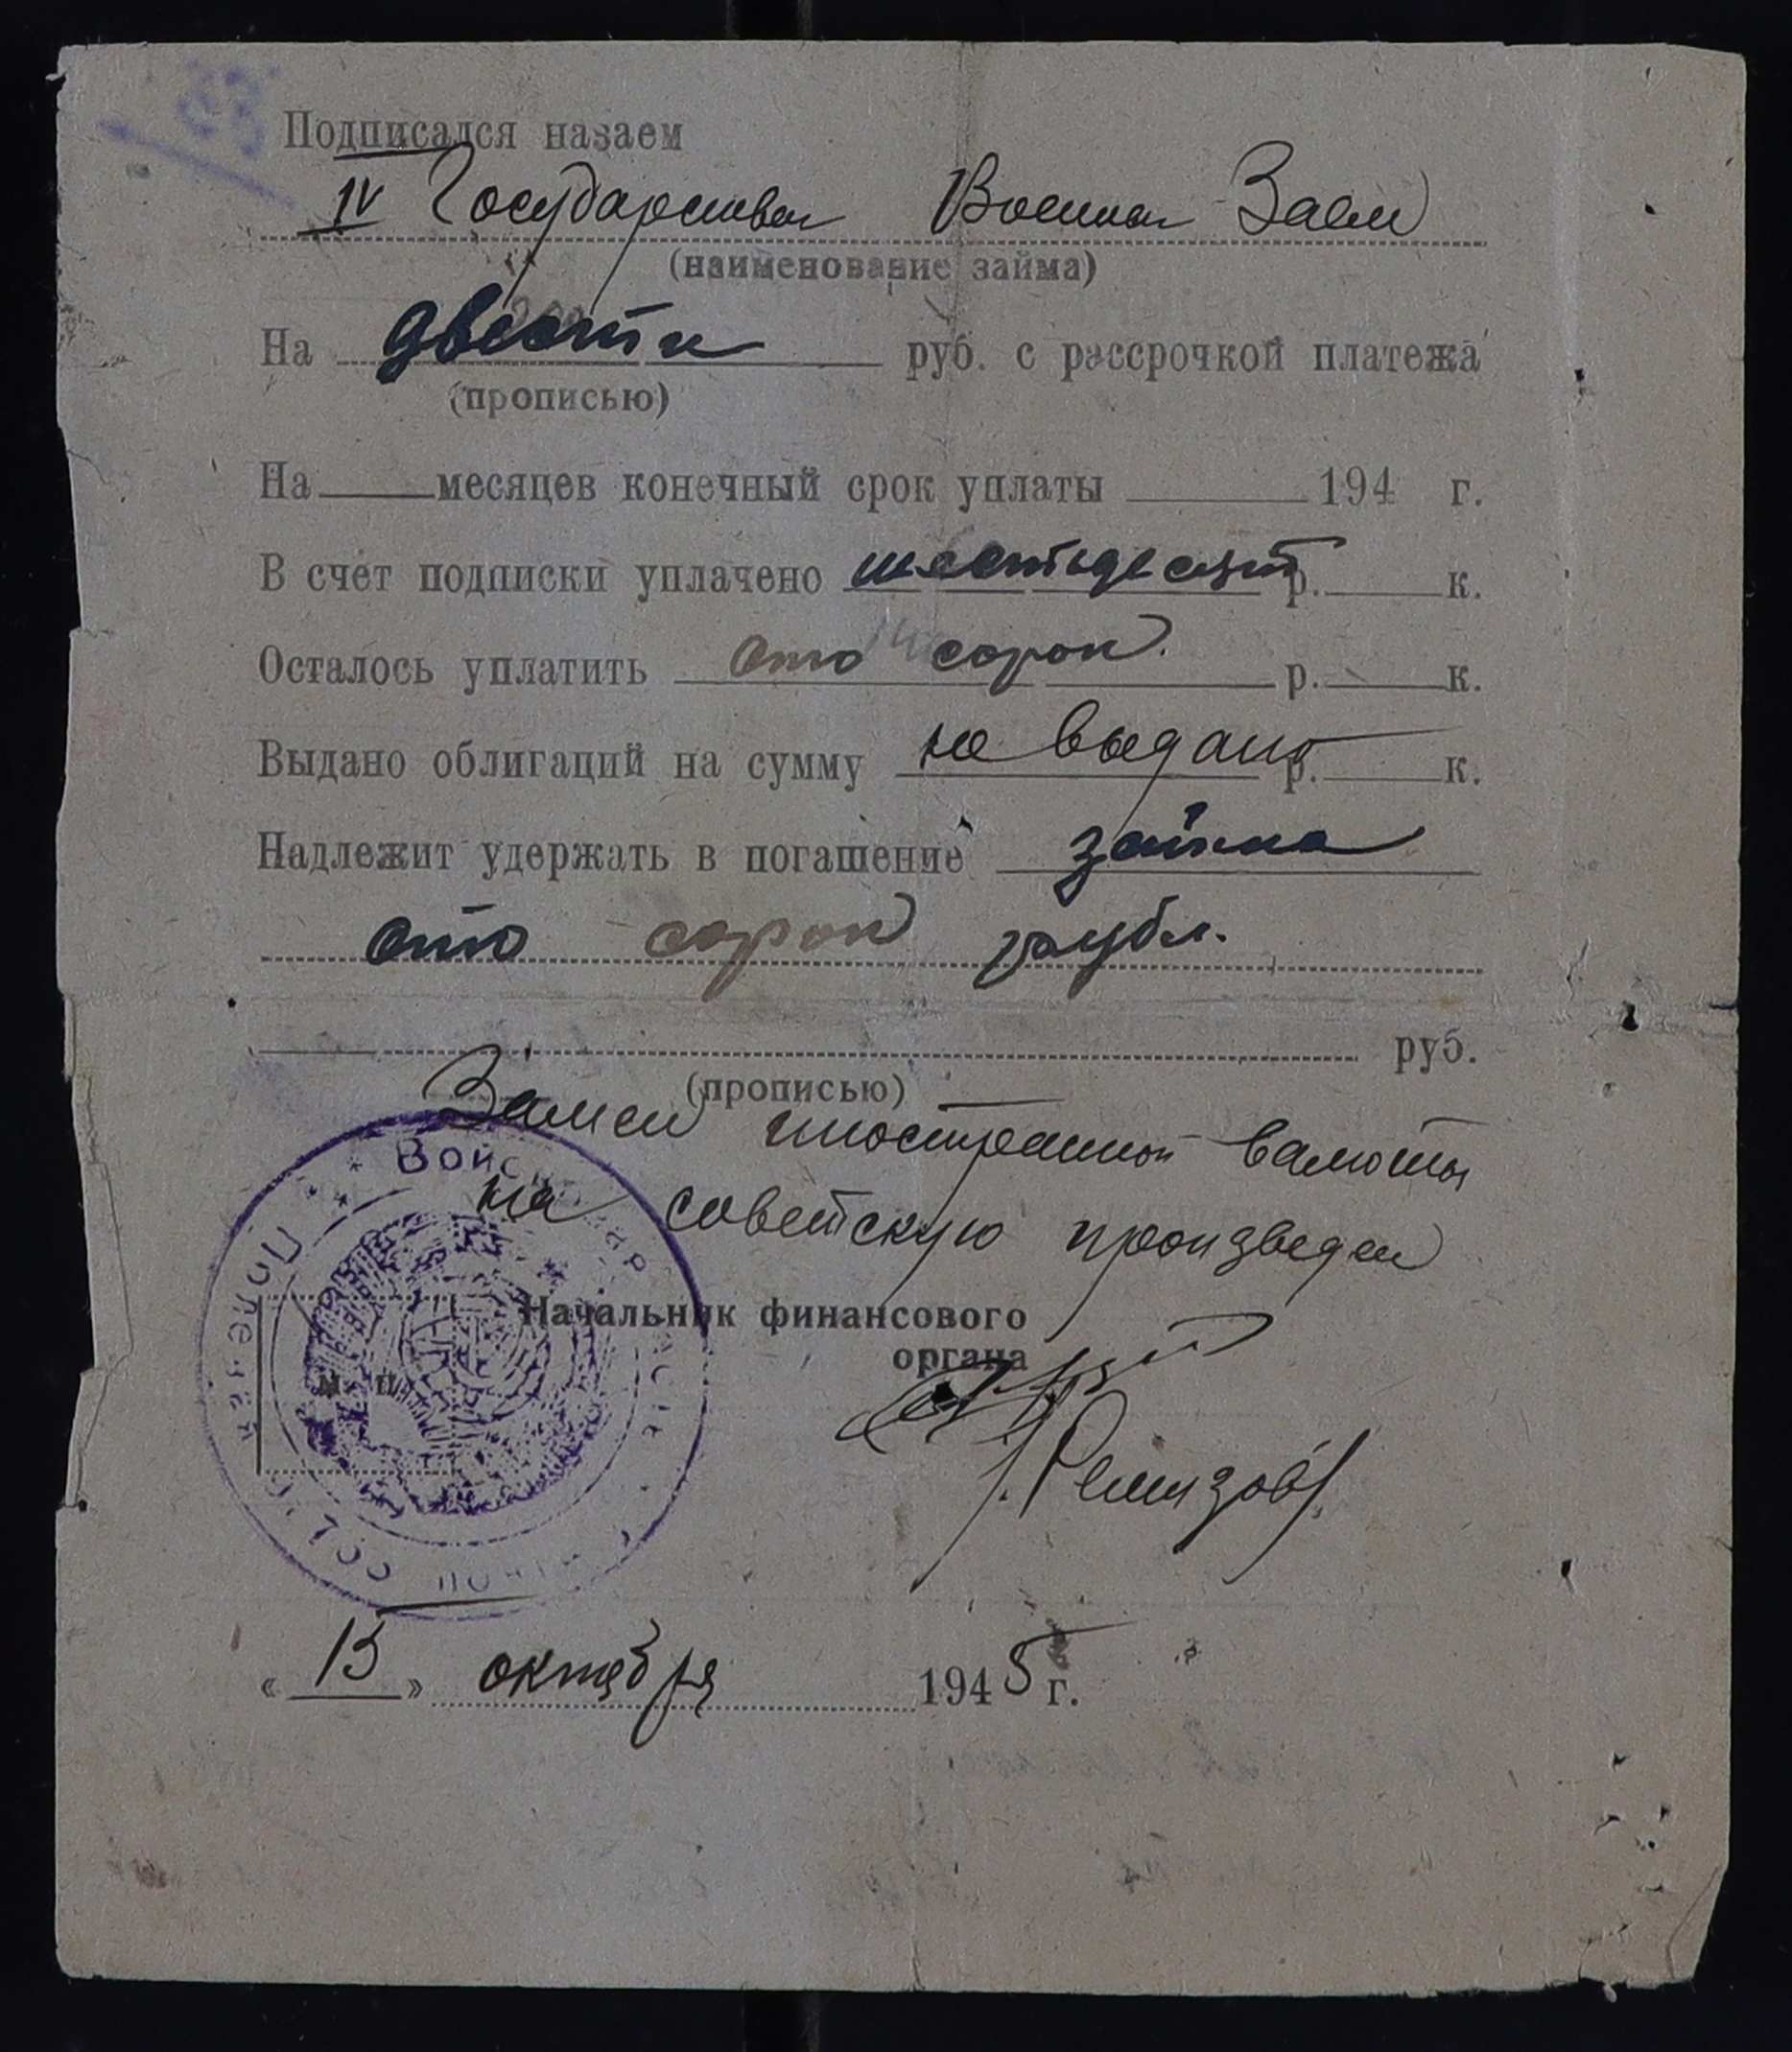 Подписался назаем
IV Государствен Военная Заем
(наименование займа)
На двести руб. с рассрочкой платежа
(прописью)
На месяцев конечный срок уплаты 194 г.
В счет подписки уплачено шестьдесят р. к.
Осталось уплатить сто сорок р. к.
Выдано облигаций на сумму не выдано р. к.
Надлежит удержать в погашение займа
сто сорок рубл.
руб.
(прописью)
Замен иностранной валюты
на советскую произведен
Начальник финансового
органа
м. п.
Ремизов
« 15 » октября 1945 г.